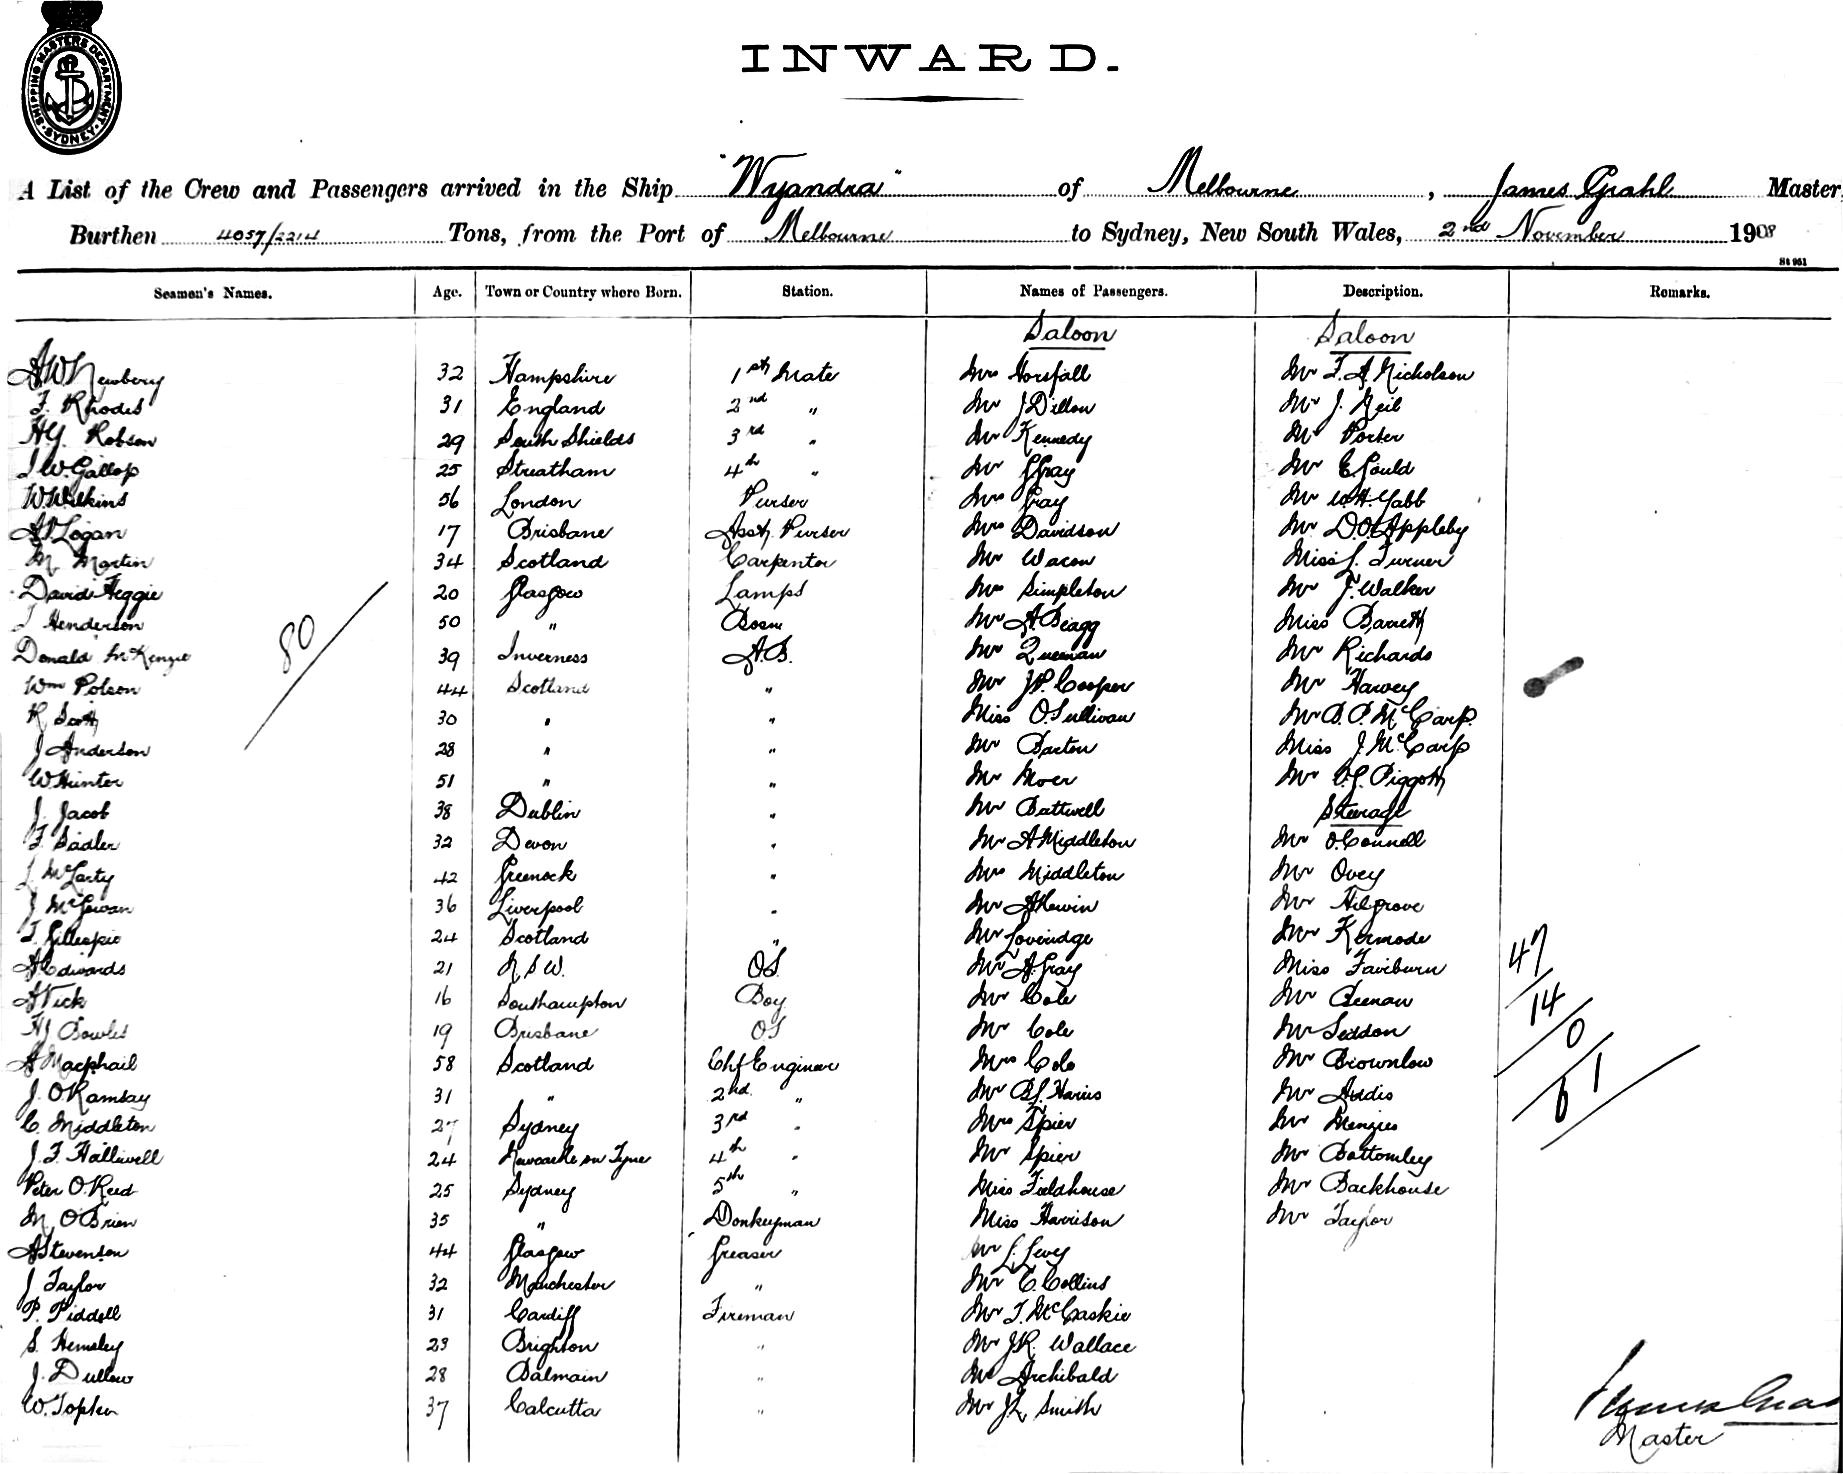 SHIPPING MASTERS DEPARTMENT. SYDNEY
INWARD.
A List of the Crew and Passengers arrived in the Ship "Wyandra" of Melbourne, James Grahl Master
Burthen 4057/2214 Tons, from the Port of Melbourne to Sydney, New South Wales, 2nd November 1908
St 951
Seamen's Names. Age. Town or Country where Born. Station. Names of Passengers. Description. Remarks.
Saloon Saloon
A W Newbery 32 Hampshire 1st Mate Mrs Horsfall Mr F. A. Nicholson
F. Rhodes 31 England 2nd " Mr J Dillon Mr J. Neil
H G. Robson 29 South Shields 3rd " Mr Kennedy Mr Porter
J W. Gallop 25 Streatham 4th " Mr G Gray Mr E Gould
W. Wilkins 56 London Purser Mrs Gray Mr W. H. Yabb
A V Logan 17 Brisbane Asst. Purser Mrs Davidson Mr D. O. Appleby
M Martin 34 Scotland Carpenter Mr Wacon Miss L. Turner
David Heggie 20 Glasgow Lamps Mrs Simpleton Mr F. Walker
J Henderson 50 " Bosn Mr A Beagg Miss Barrett
Donald McKenzie 39 Inverness A.B. Mr Queenan Mr Richards
80
Wm Polson 44 Scotland " Mr J. P. Cooper Mr Harvey
R Scott 30 " " Miss O. Sullivan Mr D. P. McCarp.
J Anderson 28 " " Mr Barton Miss J. McCarp
W Hunter 51 " " Mr Moer Mr C. J. Piggott
J. Jacob 38 Dublin " Mr Battwell Steerage
F. Sadler 32 Devon " Mr A Middleton Mr O. Connell
J. McLarty 42 Greenock " Mrs Middleton Mr Ovey
J McGowan 36 Liverpool " Mr A Kewin Mr Hilgrove
T. Gillespie 24 Scotland " Mr Loveridge Mr Kermode 47
A Edwards 21 N S W. O.S. Mr A. Gray Miss Fairburn
A Vick 16 Southampton Boy Mr Cole Mr Beenan 14
H J Bowles 19 Brisbane OS Mr Cole Mr Seddon 0
A Macphail 58 Scotland Chf Engineer Mrs Cole Mr Brownlow
J. O. Ramsay 31 " 2nd " Mr B. J. Harris Mr Addis 61
C. Middleton 27 Sydney 3rd " Mrs Spier Mr Menzies
J. F. Halliwell 24 Newcastle on Tyne 4th " Mr Spier Mr Bottomley
Peter O. Reid 25 Sydney 5th " Miss Fieldhouse Mr Backhouse
M. O'Brien 35 " Donkeyman Miss Harrison Mr Taylor
A Stevenson 44 Glasgow Greaser Mr L. Levy
J Taylor 32 Manchester " Mr C. Collins
P. Piddell 31 Cardiff Fireman Mr T. McCaskie
S. Hemsley 23 Brighton " Mr J. R. Wallace
J. Dullow 28 Balmain " Mr Archibald
W. Topken 37 Calcutta " Mr J L Smith
James Grahl
Master